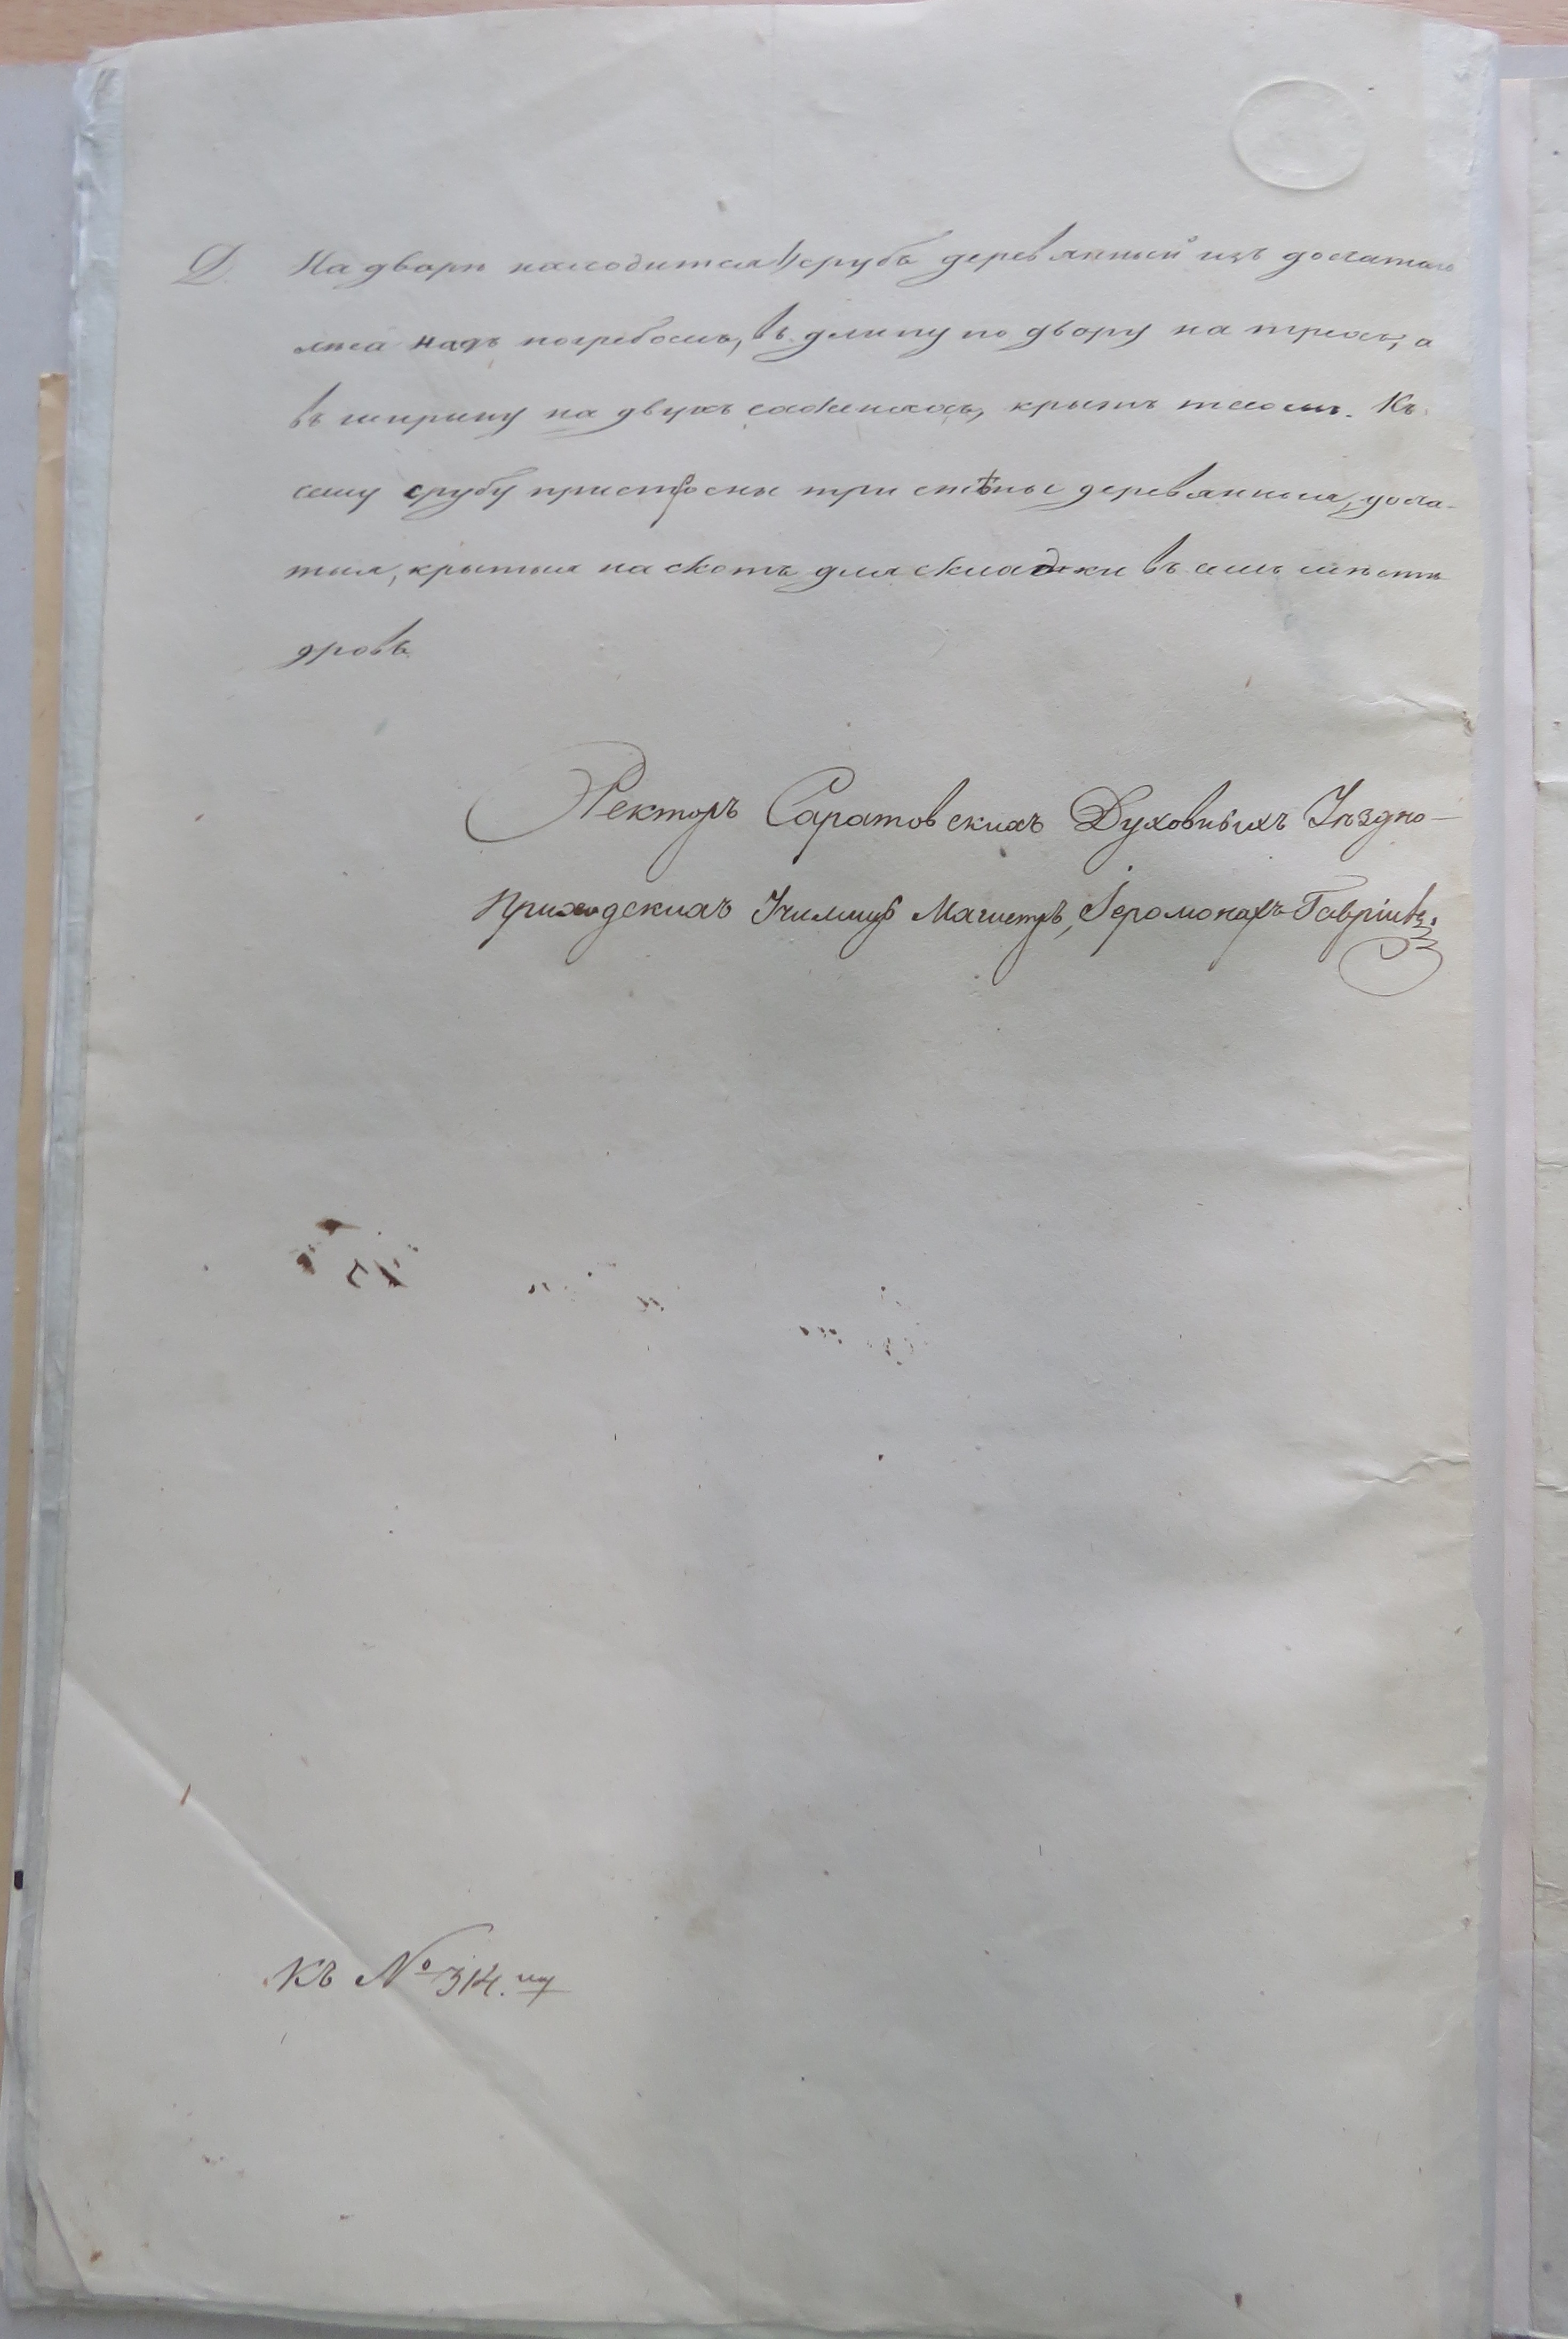 Д. На дворѣ находится срубъ деревянный изъ дослатаго
лѣса надъ погребомъ, въ длину по двору на трехъ, а
въ ширину на двухъ саженяхъ, крытъ тесомъ. Къ
сему срубу пристроены три стѣны деревянныя, досла-
тыя, крытыя на скотъ для складки въ семъ мѣстѣ
дровъ
Ректоръ Саратовскихъ Духовныхъ Уѣздно-
Приходскихъ Училищъ Магистръ, Іеромонахъ Гавріилъ.
Къ № 314.му